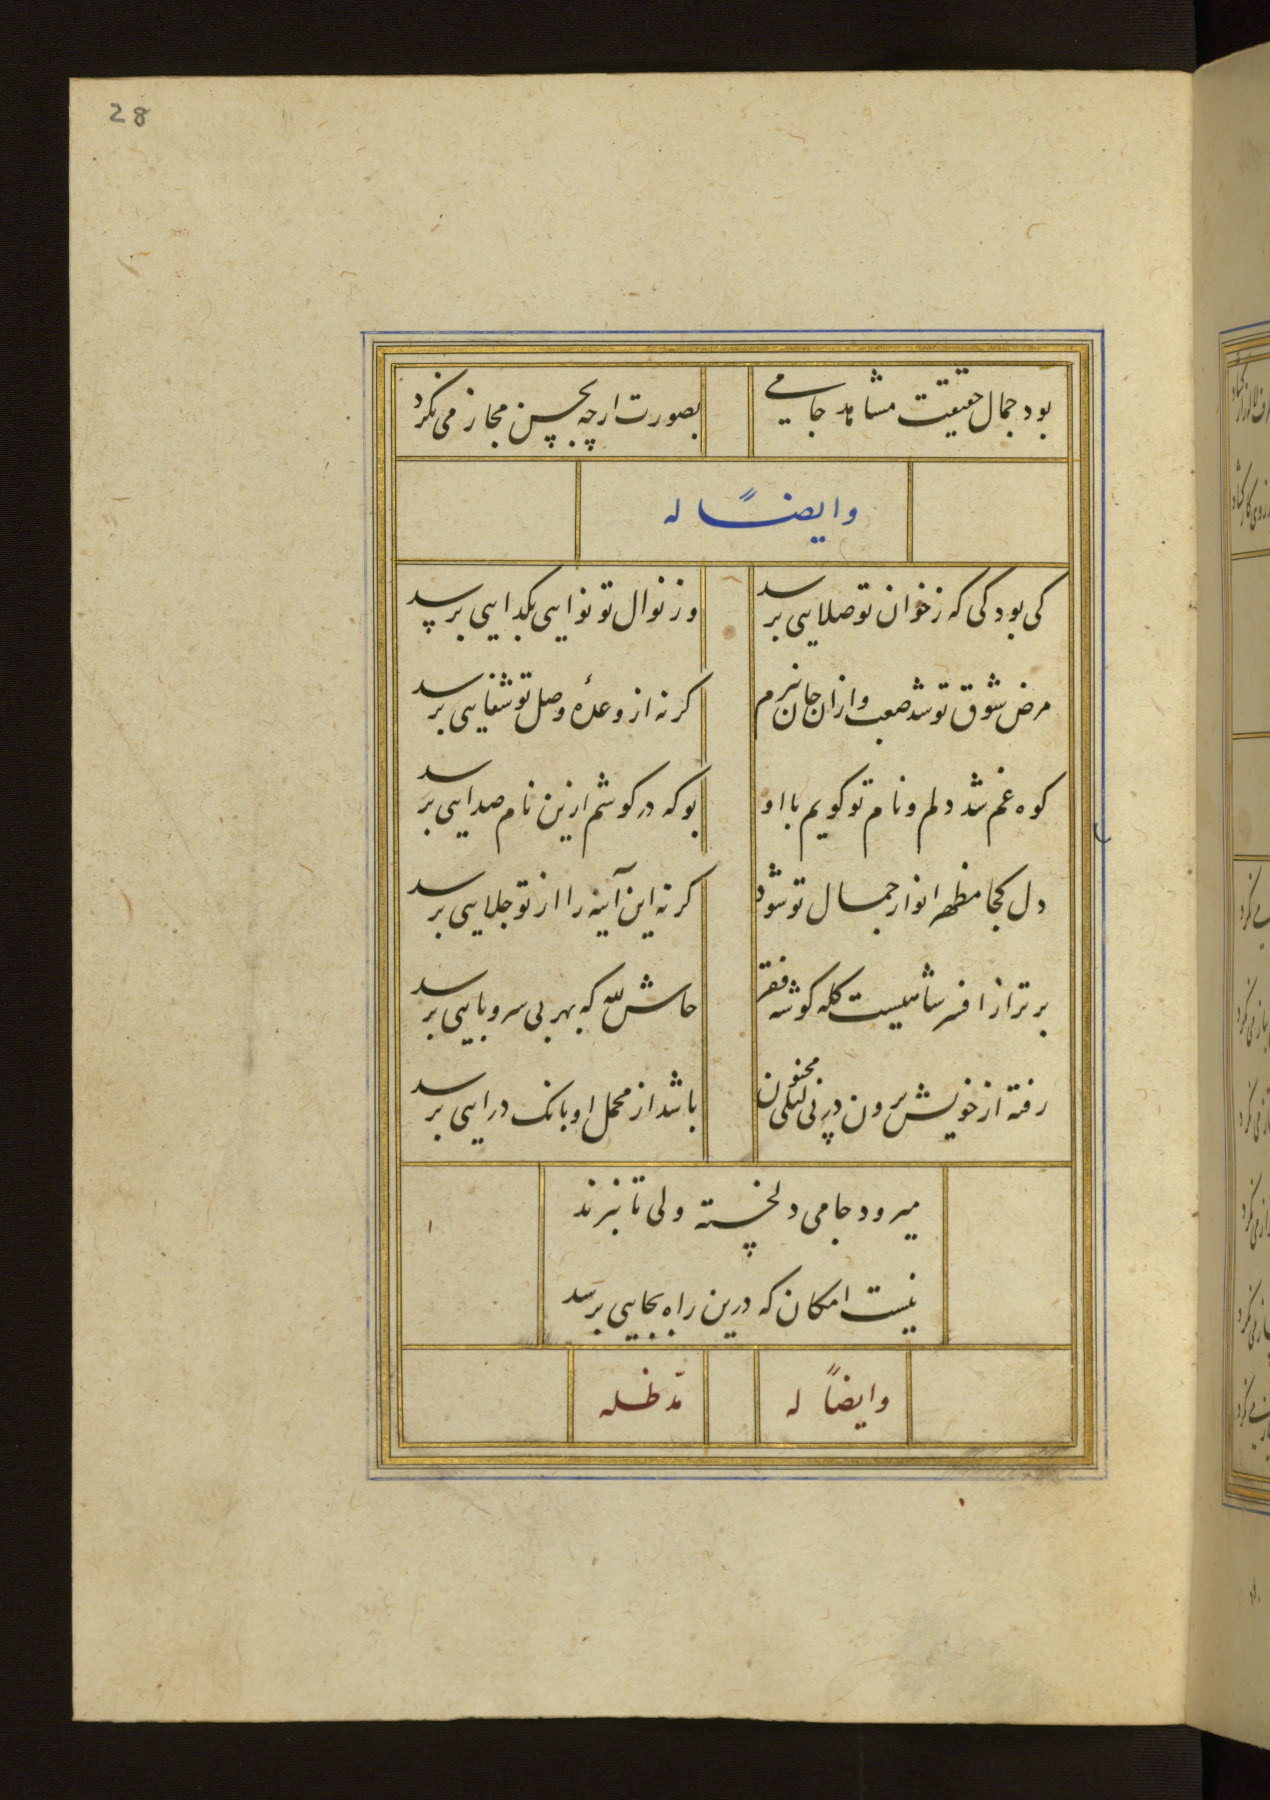 28
بود جمال حقیقت مشاهد جامی
بصورت ارچه بحسن مجاز می نکرد
وایضاً له
کی بود کی که ز خوان تو صلایی برسد
وز نوال تو نوایی بکدایی برسد
مرض شوق تو شد صعب و ازان جان نبرم
کرنه از وعدهٔ وصل تو شفایی برسد
کوه غم شد دلم و نام تو کویم با او
بو که در کوشم ازین نام صدایی برسد
دل کجا مظهر انوار جمال تو شود
کرنه این آینه را از تو جلایی برسد
برتر از افسر شاهیست کله کوشه فقر
حاش لله که بهر بی سر و پایی برسد
رفته از خویش برون در پی لیلی مجنون
باشد از محمل او بانک درایی برسد
میرود جامی دلخسته ولی تا نبرند
نیست امکان که درین راه بجایی برسد
وایضاً له
مدّ ظله